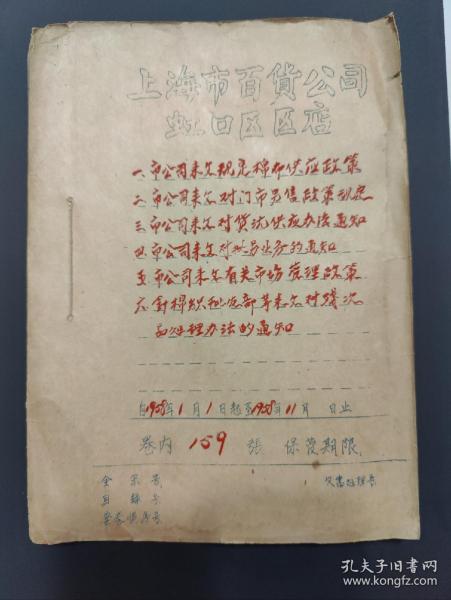 上海市百貨公司
虹口区区店
一、市公司来文规定棉布供应政策
二、市公司来文对门市另售政策规定
三、市公司来文对货流供应办法通知
四、市公司来文对业务的通知
五、市公司来文有关市场管理政策
六、针棉织批发部等来文对残次
处理办法的通知
自1958年1月1日起至1958年11月 日止
卷内 159 張 保管期限
全宗号
目録号
案卷顺序号
孔夫子旧书网
www.kongfz.com